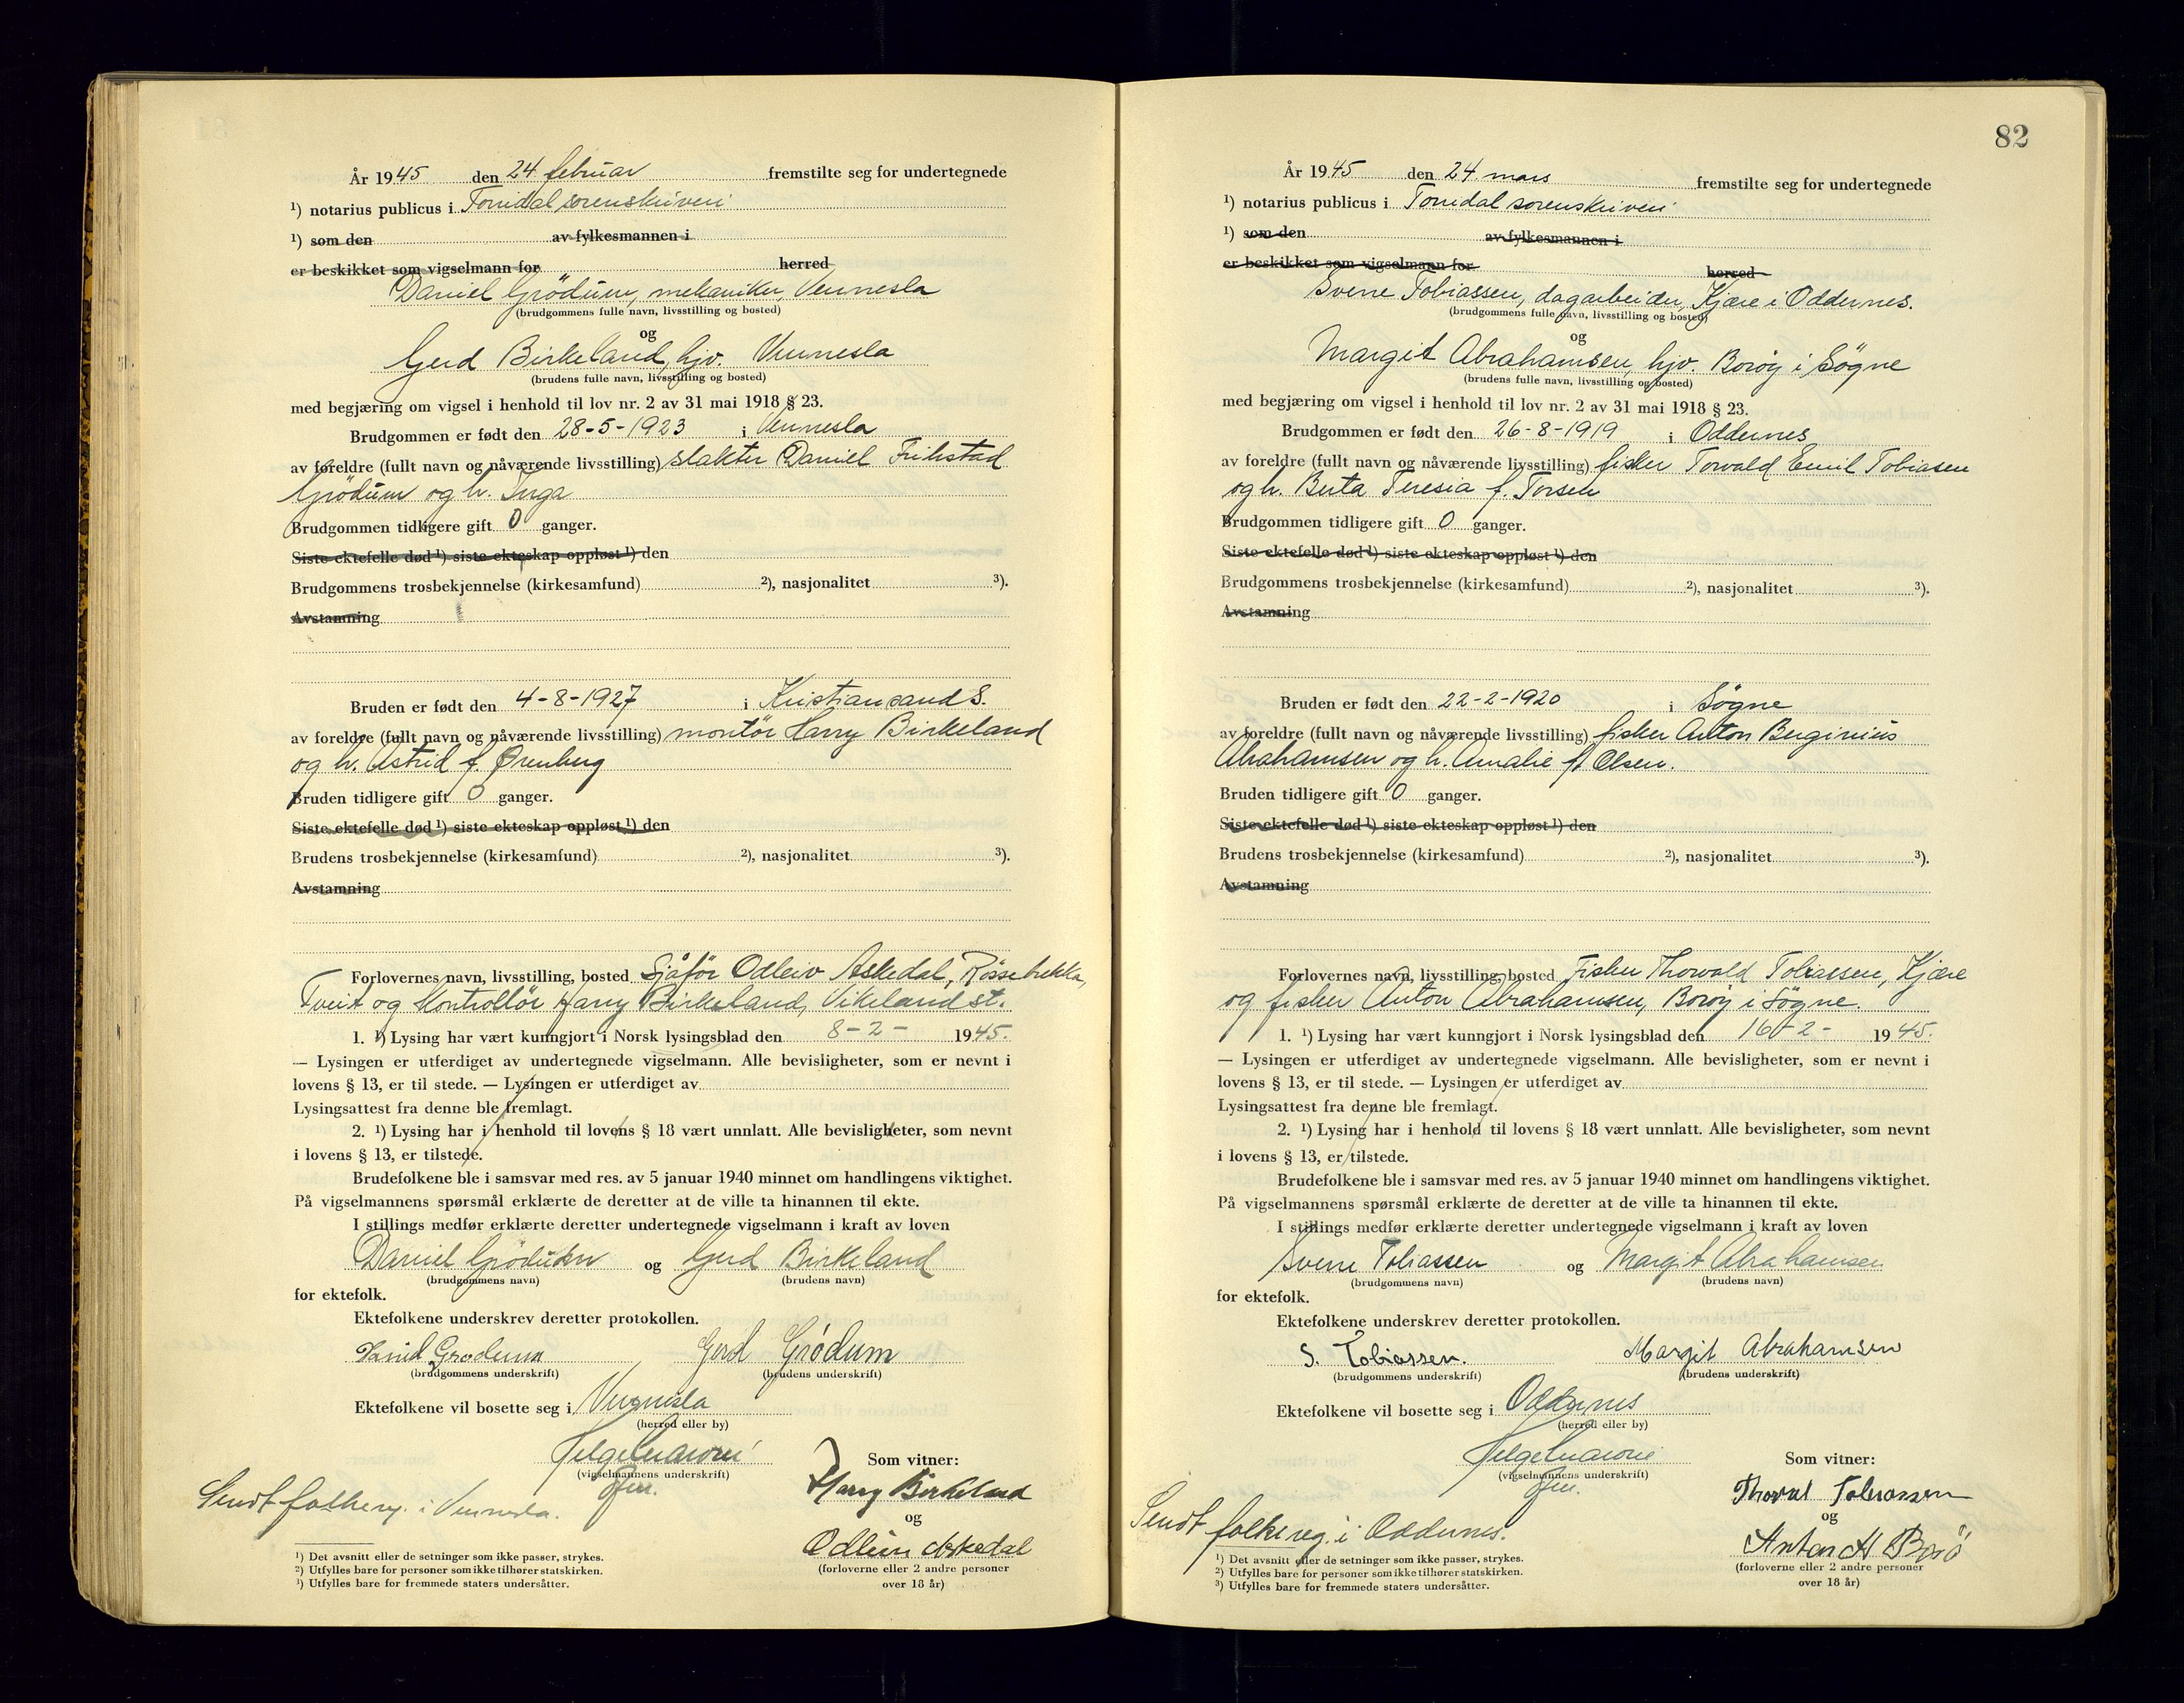 År 1945 den 24. februar fremstilte seg for undertegnede
¹) notarius publicus i Torridal sorenskriveri
¹) som den av fylkesmannen i
er beskikket som vigselmann for herred
Daniel Grödum, mekaniker, Vennesla
(brudgommens fulle navn, livsstilling og bosted)
og
Gerd Birkeland, hjv. Vennesla
(brudens fulle navn, livsstilling og bosted)
med begjæring om vigsel i henhold til lov nr. 2 av 31 mai 1918 § 23.
Brudgommen er født den 28-5-1923 i Vennesla
av foreldre (fullt navn og nåværende livsstilling) slakter Daniel Frikstad
Grödum og h. Inga
Brudgommen tidligere gift 0 ganger.
Siste ektefelle død ¹) siste ekteskap oppløst ¹) den
Brudgommens trosbekjennelse (kirkesamfund) ²), nasjonalitet ³).
Avstamning
Bruden er født den 4-8-1927 i Kristiansand S.
av foreldre (fullt navn og nåværende livsstilling) montör Harry Birkeland
og h. Astrid f. Ørenberg
Bruden tidligere gift 0 ganger.
Siste ektefelle død ¹) siste ekteskap oppløst ¹) den
Brudens trosbekjennelse (kirkesamfund) ²), nasjonalitet ³).
Avstamning
Forlovernes navn, livsstilling, bosted Sjåför Odleiv Askedal, Røssebekka,
Tveit og Kontrollör Harry Birkeland, Vikeland st.
1. ¹) Lysing har vært kunngjort i Norsk lysingsblad den 8-2- 1945.
— Lysingen er utferdiget av undertegnede vigselmann. Alle bevisligheter, som er nevnt i
lovens § 13, er til stede. — Lysingen er utferdiget av
Lysingsattest fra denne ble fremlagt.
2. ¹) Lysing har i henhold til lovens § 18 vært unnlatt. Alle bevisligheter, som nevnt
i lovens § 13, er tilstede.
Brudefolkene ble i samsvar med res. av 5 januar 1940 minnet om handlingens viktighet.
På vigselmannens spørsmål erklærte de deretter at de ville ta hinannen til ekte.
I stillings medfør erklærte deretter undertegnede vigselmann i kraft av loven
Daniel Grödum og Gerd Birkeland
(brudgommens navn) (brudens navn)
for ektefolk.
Ektefolkene underskrev deretter protokollen.
Daniel Grødum Gerd Grødum
(brudgommens underskrift) (brudens underskrift)
Ektefolkene vil bosette seg i Vennesla
(herred eller by)
(vigselmannens underskrift)
Som vitner:
Harry Birkeland
og
Odleiv Askedal
(forloverne eller 2 andre personer
over 18 år)
Sendt folkereg. i Vennesla.
¹) Det avsnitt eller de setninger som ikke passer, strykes.
²) Utfylles bare for personer som ikke tilhører statskirken.
³) Utfylles bare for fremmede staters undersåtter.
82
År 1945 den 24. mars fremstilte seg for undertegnede
¹) notarius publicus i Torridal sorenskriveri
¹) som den av fylkesmannen i
er beskikket som vigselmann for herred
Sverre Tobiassen, dagarbeider, Kjære i Oddernes.
(brudgommens fulle navn, livsstilling og bosted)
og
Margit Abrahamsen, hjv. Borøy i Søgne
(brudens fulle navn, livsstilling og bosted)
med begjæring om vigsel i henhold til lov nr. 2 av 31 mai 1918 § 23.
Brudgommen er født den 26-8-1919 i Oddernes
av foreldre (fullt navn og nåværende livsstilling) fisker Torvald Emil Tobiasen
og h. Berta Teresia f. Torsen
Brudgommen tidligere gift 0 ganger.
Siste ektefelle død ¹) siste ekteskap oppløst ¹) den
Brudgommens trosbekjennelse (kirkesamfund) ²), nasjonalitet ³).
Avstamning
Bruden er født den 22-2-1920 i Søgne
av foreldre (fullt navn og nåværende livsstilling) fisker Anton Berginius
Abrahamsen og h. Amalie f. Olsen.
Bruden tidligere gift 0 ganger.
Siste ektefelle død ¹) siste ekteskap oppløst ¹) den
Brudens trosbekjennelse (kirkesamfund) ²), nasjonalitet ³).
Avstamning
Forlovernes navn, livsstilling, bosted Fisker Thorvald Tobiassen, Kjære
og fisker Anton Abrahamsen, Borøy i Søgne.
1. ¹) Lysing har vært kunngjort i Norsk lysingsblad den 16-2- 1945.
— Lysingen er utferdiget av undertegnede vigselmann. Alle bevisligheter, som er nevnt i
lovens § 13, er til stede. — Lysingen er utferdiget av
Lysingsattest fra denne ble fremlagt.
2. ¹) Lysing har i henhold til lovens § 18 vært unnlatt. Alle bevisligheter, som nevnt
i lovens § 13, er tilstede.
Brudefolkene ble i samsvar med res. av 5 januar 1940 minnet om handlingens viktighet.
På vigselmannens spørsmål erklærte de deretter at de ville ta hinannen til ekte.
I stillings medfør erklærte deretter undertegnede vigselmann i kraft av loven
Sverre Tobiassen og Margit Abrahamsen
(brudgommens navn) (brudens navn)
for ektefolk.
Ektefolkene underskrev deretter protokollen.
S. Tobiassen. Margit Abrahamsen
(brudgommens underskrift) (brudens underskrift)
Ektefolkene vil bosette seg i Oddernes
(herred eller by)
(vigselmannens underskrift)
Som vitner:
Thorval Tobiassen
og
Anton A Borö
(forloverne eller 2 andre personer
over 18 år)
Sendt folkereg. i Oddernes.
¹) Det avsnitt eller de setninger som ikke passer, strykes.
²) Utfylles bare for personer som ikke tilhører statskirken.
³) Utfylles bare for fremmede staters undersåtter.